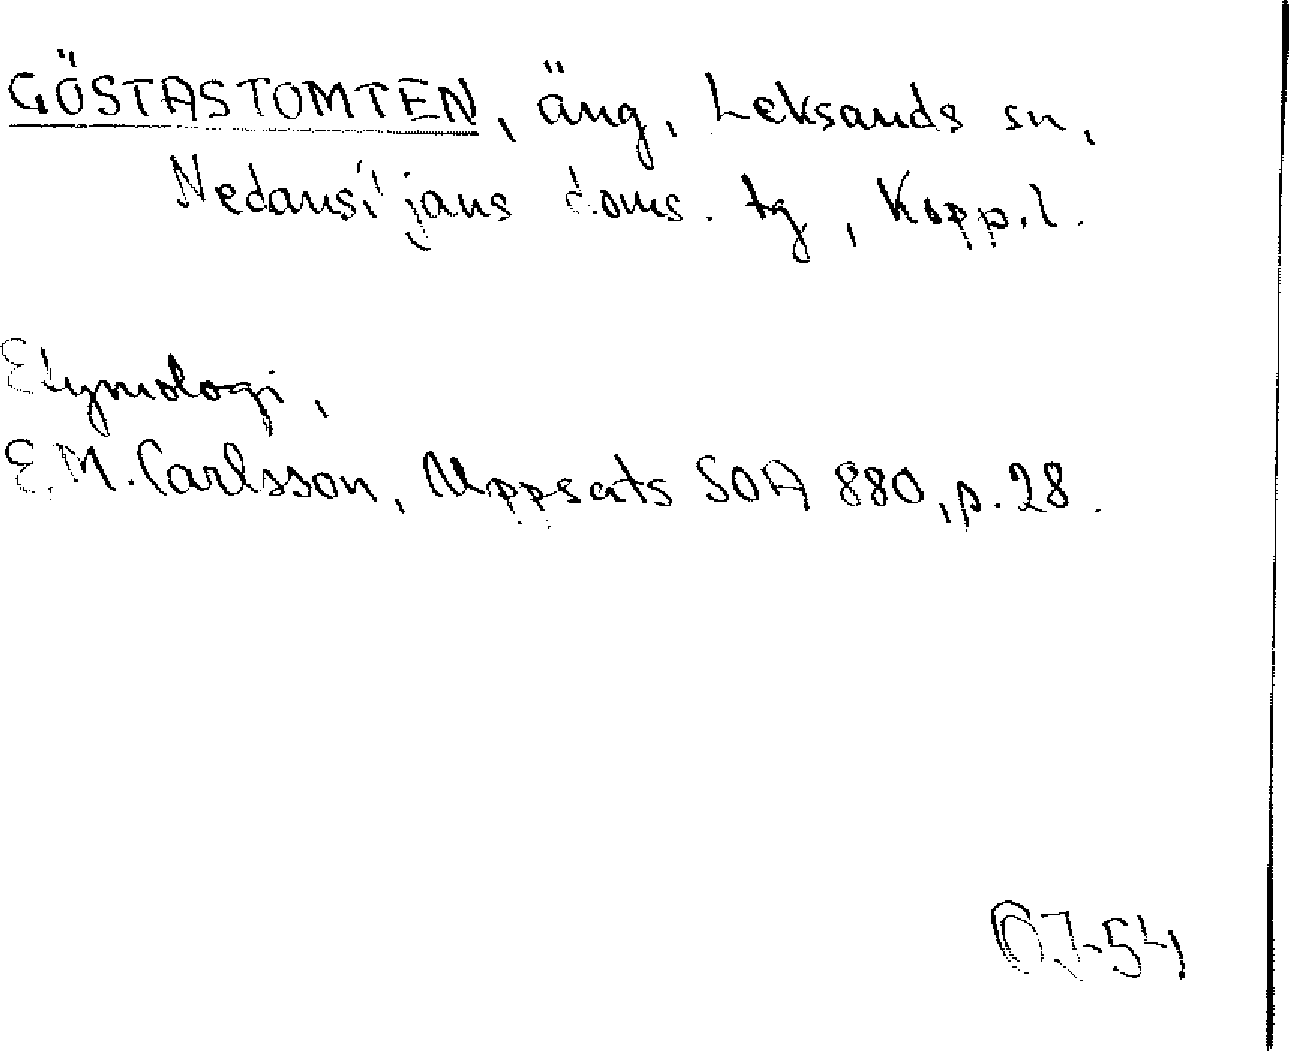 GÖSTASTOMTEN, äng, Leksands sn,
Nedansiljans doms. tg, Kopp.l.
Etymologi,
E.M. Carlsson, Uppsats SOA 880, p. 28.